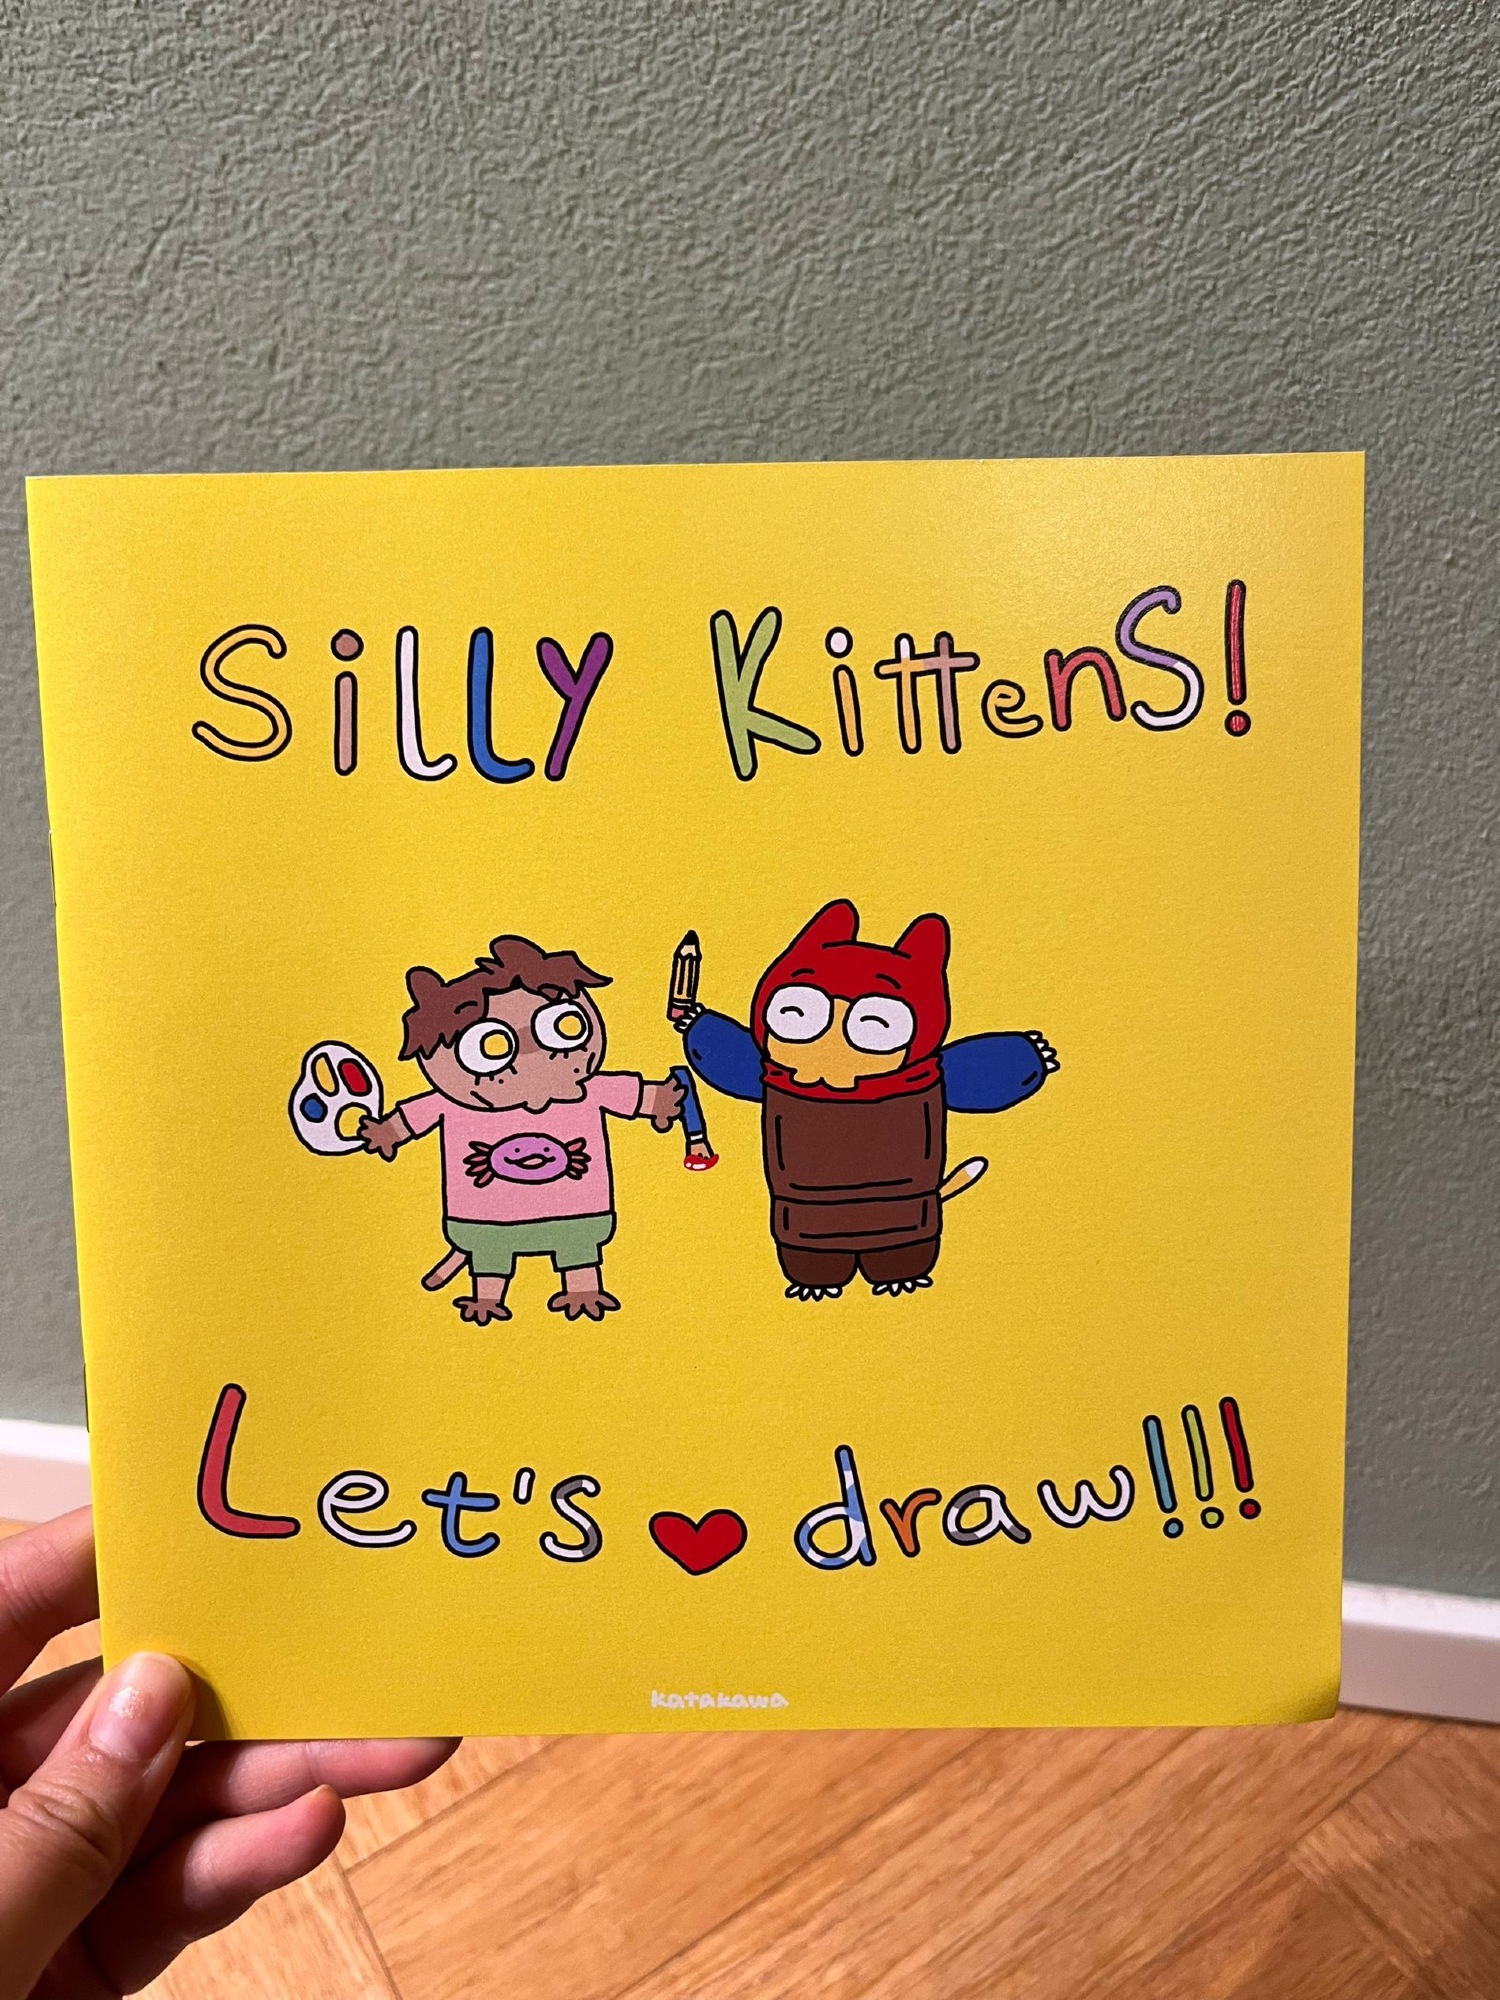 Silly Kittens!
Let's ❤ draw!!!
katakawa